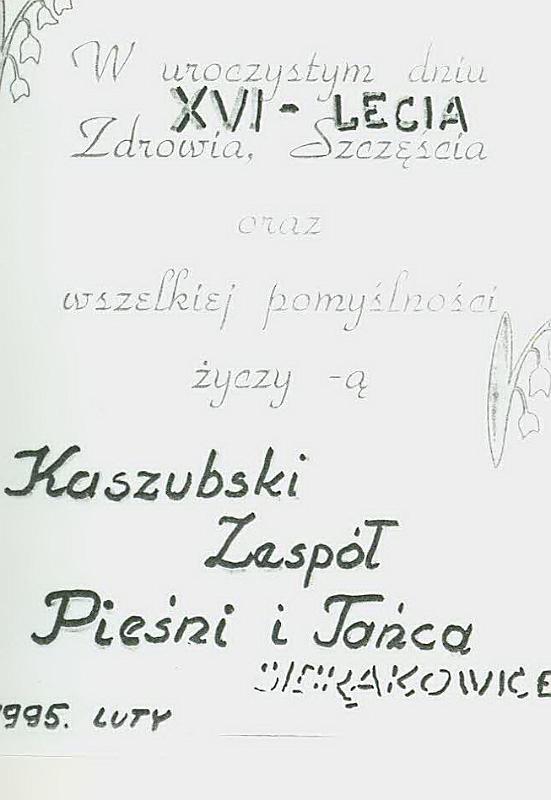 W uroczystym dniu
XVI - LECIA
Zdrowia, Szczęścia
oraz
wszelkiej pomyślności
życzy -ą
Kaszubski
Zespół
Pieśni i Tańca
SIERAKOWICE
1995. LUTY